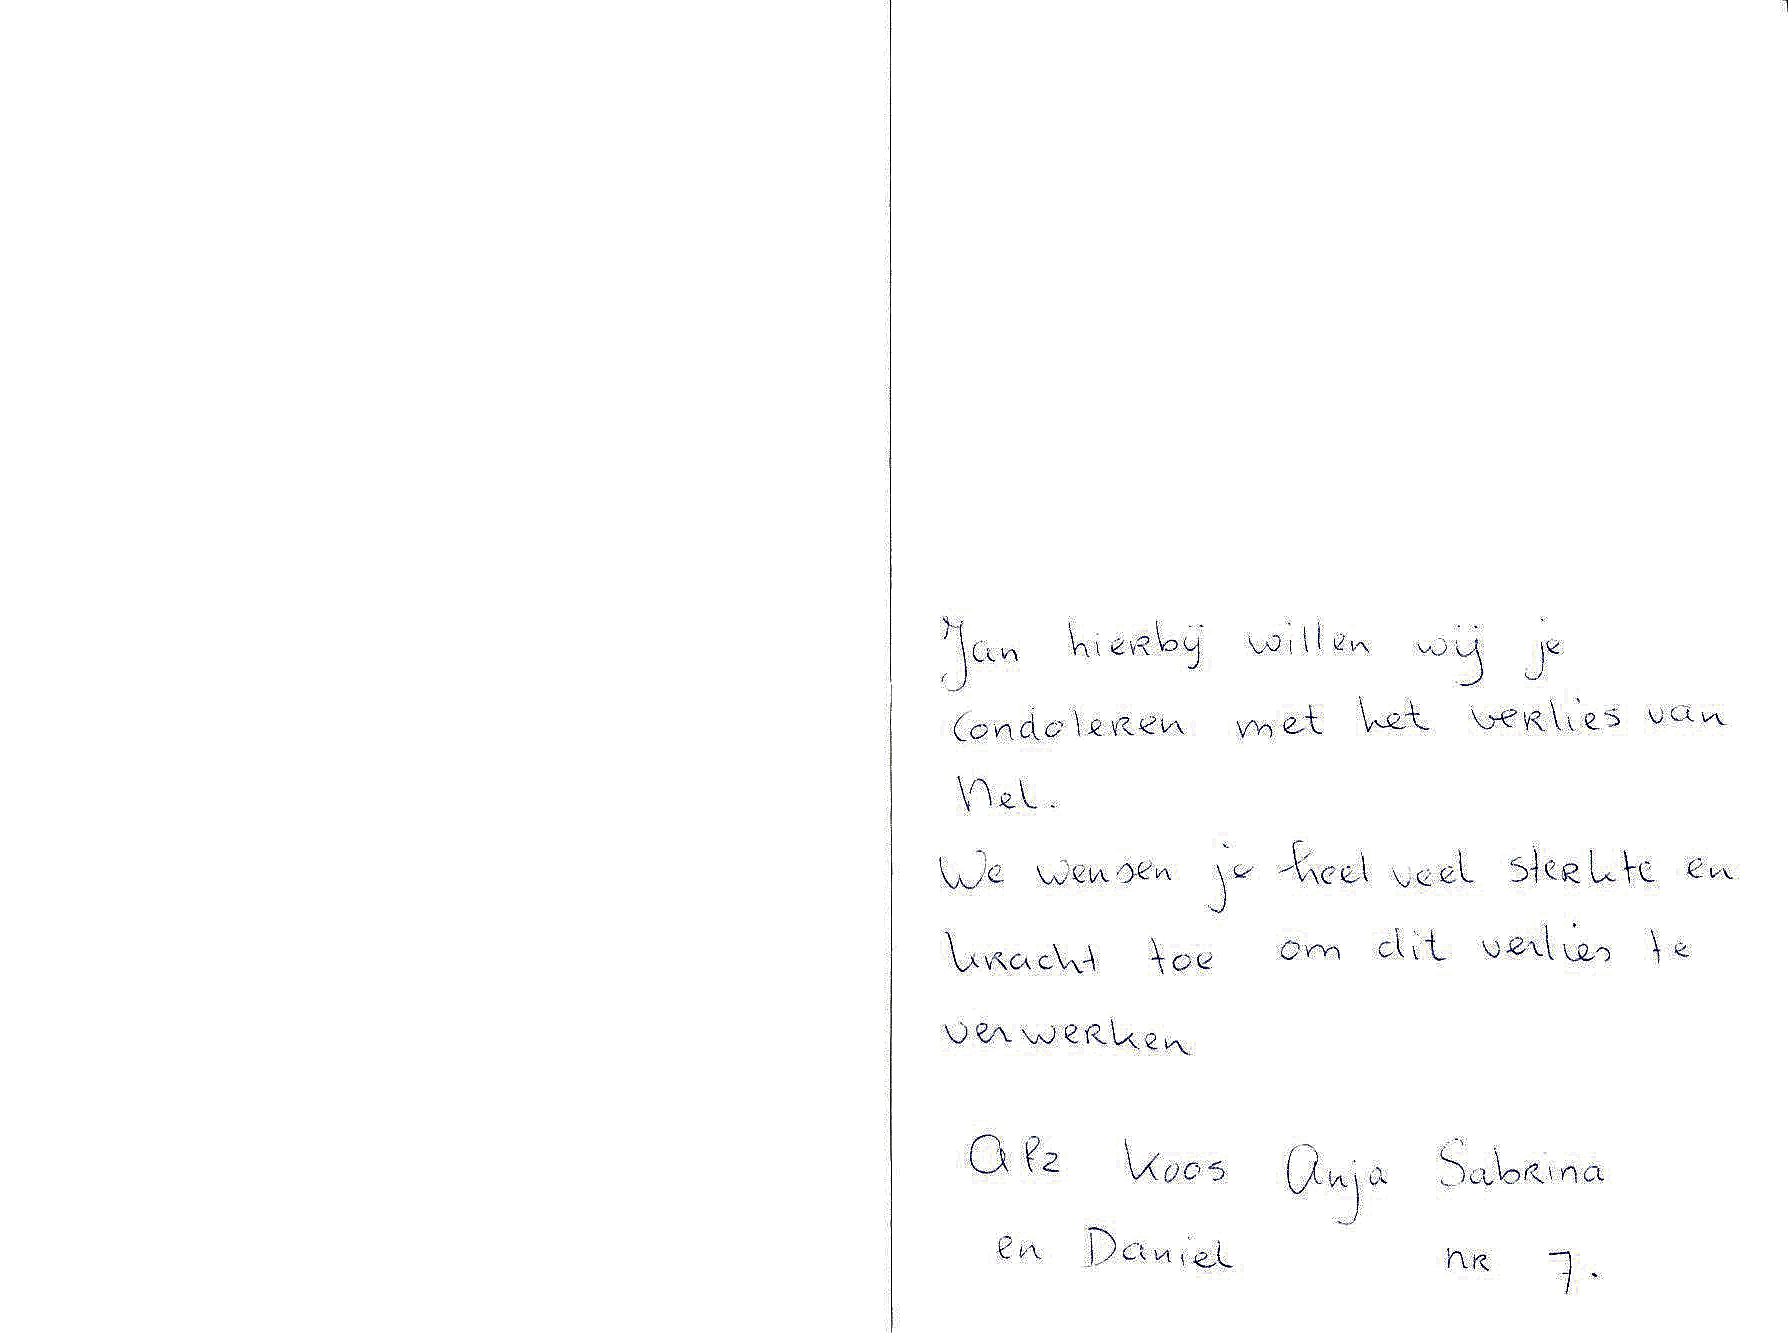 Jan hierbij willen wij je
condoleren met het verlies van
Nel.
We wensen je heel veel sterkte en
kracht toe om dit verlies te
verwerken
Afz Koos Anja Sabrina
en Daniel nr 7.